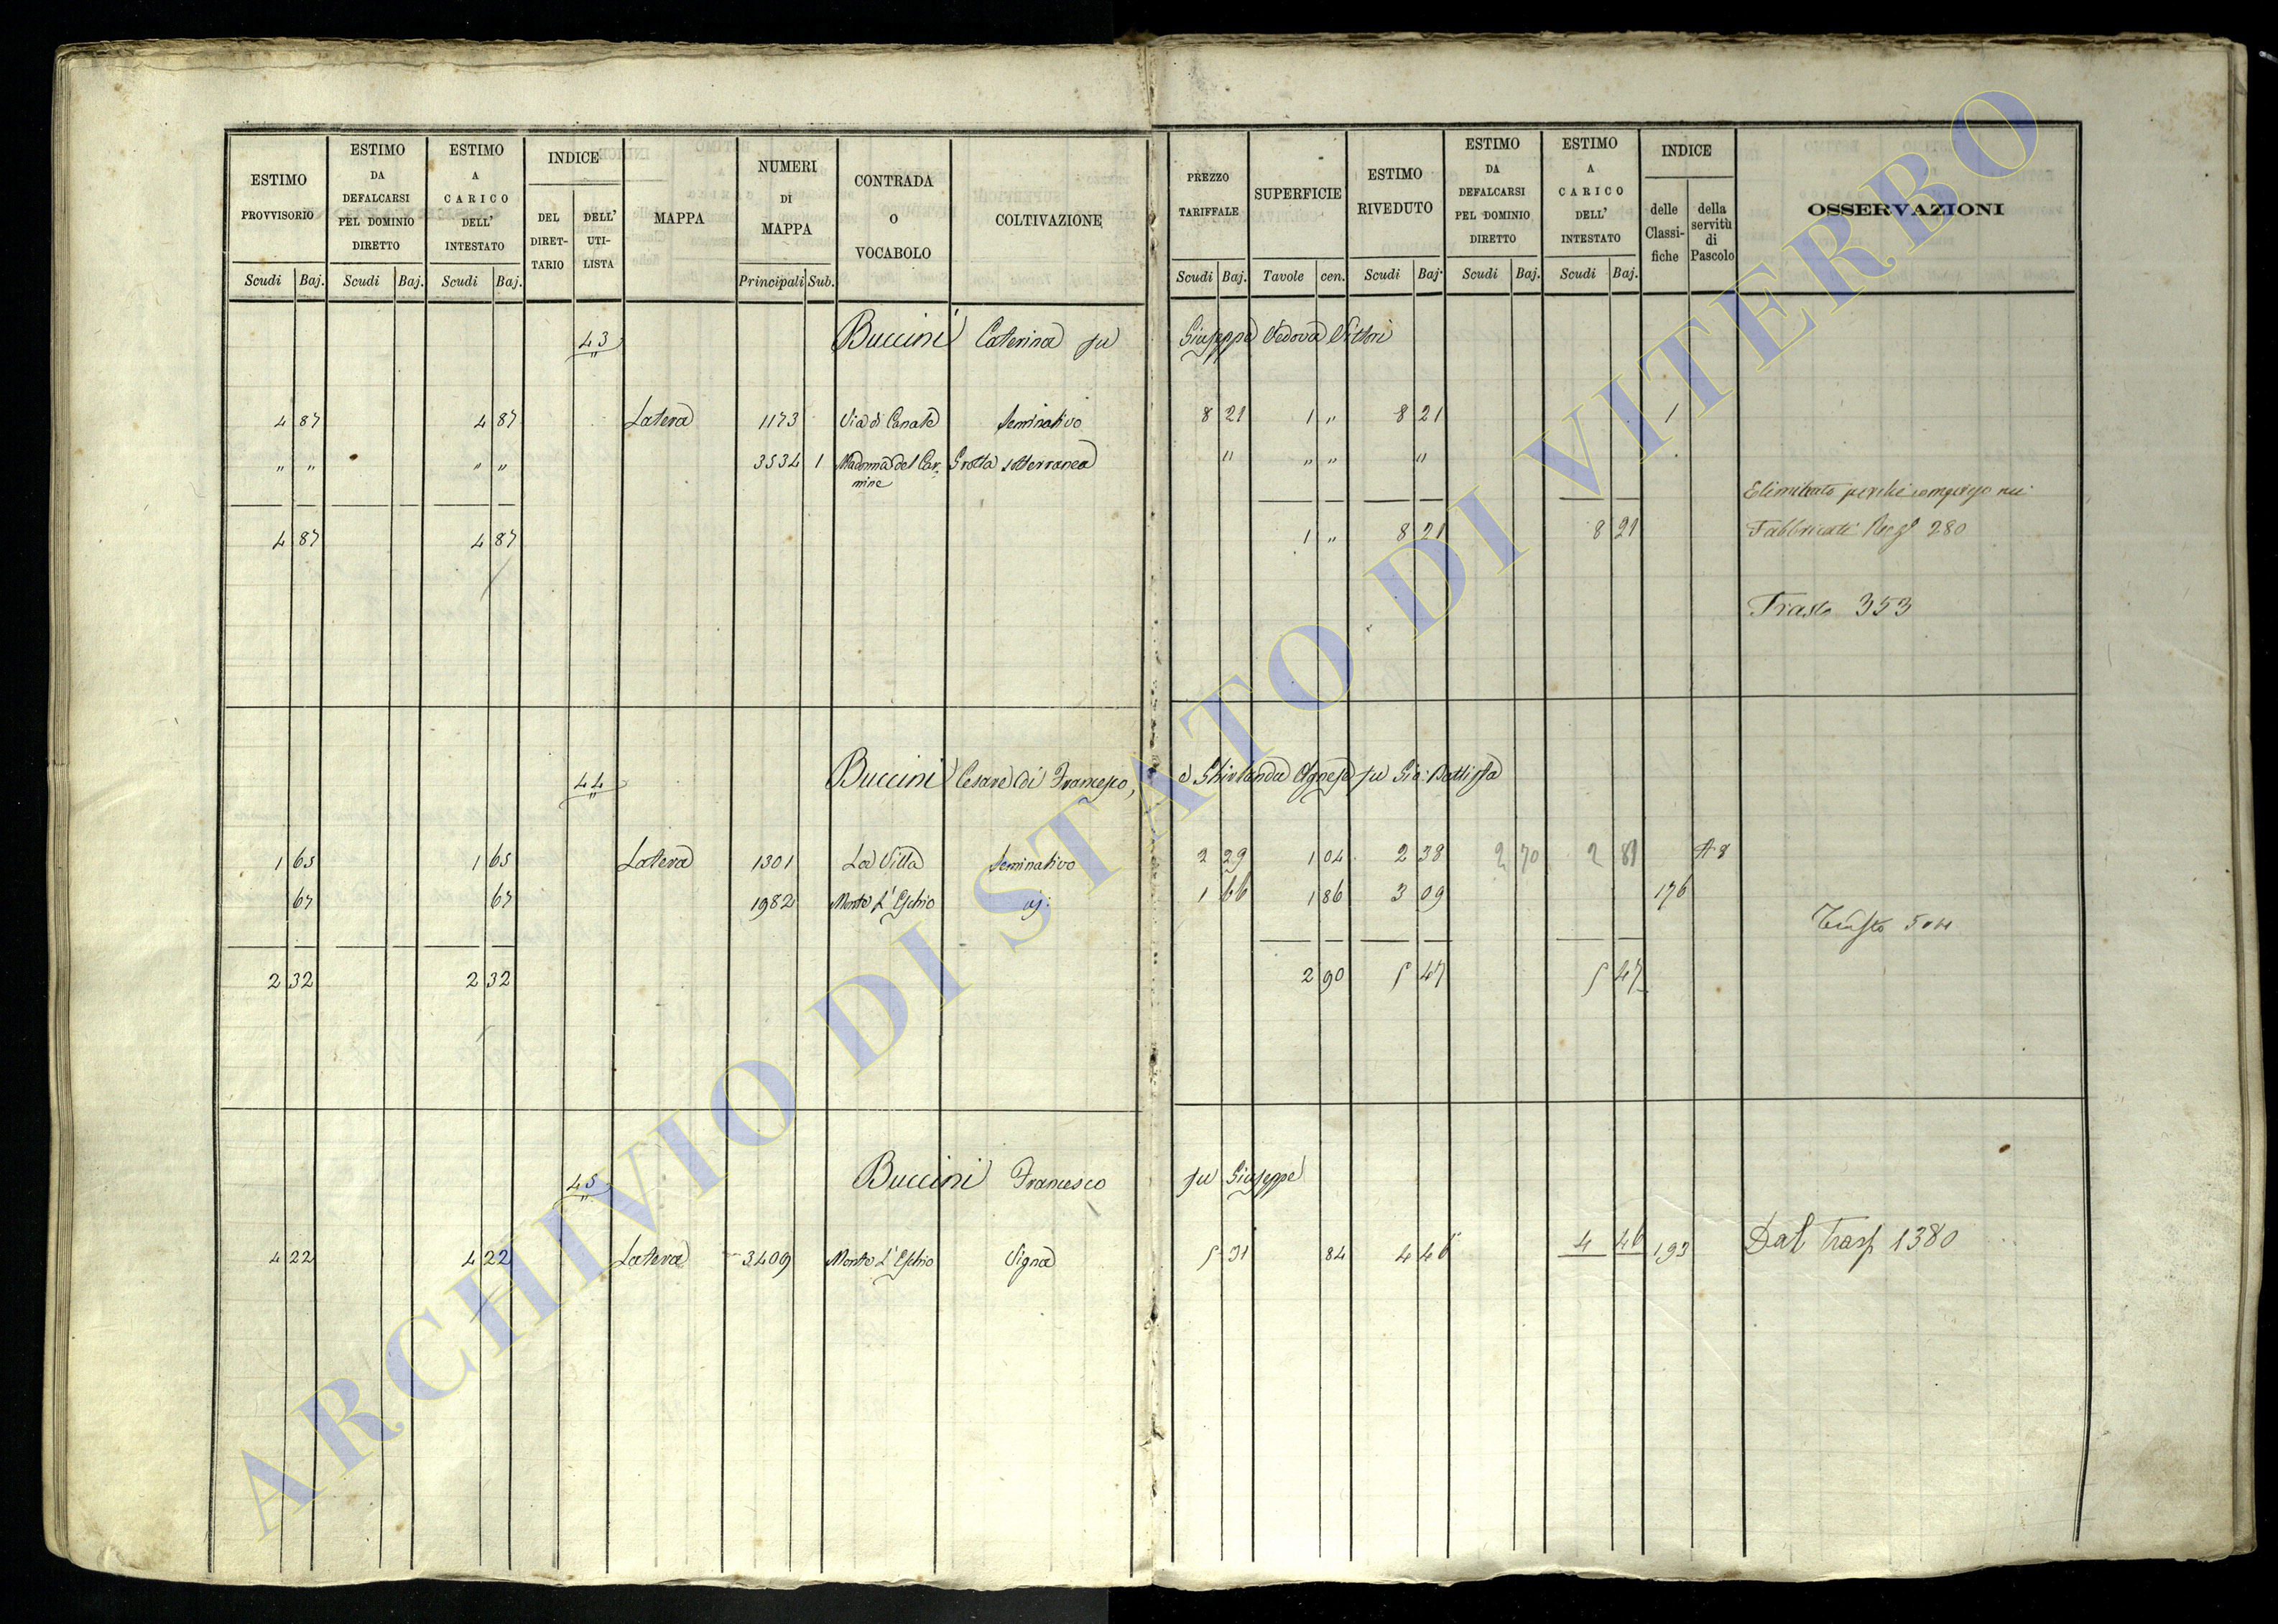 ESTIMO PROVVISORIO | ESTIMO DA DEFALCARSI PEL DOMINIO DIRETTO | ESTIMO A CARICO DELL' INTESTATO | INDICE | MAPPA | NUMERI DI MAPPA | CONTRADA O VOCABOLO | COLTIVAZIONE | PREZZO TARIFFALE | SUPERFICIE | ESTIMO RIVEDUTO | ESTIMO DA DEFALCARSI PEL DOMINIO DIRETTO | ESTIMO A CARICO DELL' INTESTATO | INDICE | OSSERVAZIONI
DEL DIRETTARIO | DELL' UTILISTA | delle Classifiche | della servitù di Pascolo
Scudi | Baj. | Scudi | Baj. | Scudi | Baj. | Principali | Sub. | Scudi | Baj. | Tavole | cen. | Scudi | Baj. | Scudi | Baj. | Scudi | Baj.
43 Buccini Caterina fu Giuseppe Vedova Vittori
4 87 4 87 Latera 1173 Via di Canale Seminativo 8 21 1 " 8 21 1
" " " " 3534 1 Madonna del Carmine Grotta sotterranea " " " "
Eliminato perchè compreso nei
4 87 4 87 1 " 8 21 8 21 Fabbricati 280
Trasto 353
44 Buccini Cesare di Francesco, e Ghirlanda Agnese fu Gio: Battista
1 65 1 65 Latera 1301 La Villa Seminativo 2 29 1 04 2 38 2 70 2 81 A 8
67 67 1982 Monte L'Eschio id: 1 66 1 86 3 09 176
Trasto 504
2 32 2 32 2 90 5 47 5 47
45 Buccini Francesco fu Giuseppe
4 22 4 22 Latera 3409 Monte L'Eschio Vigna 5 31 84 4 46 4 46 193 Dal Trasp 1380
ARCHIVIO DI STATO DI VITERBO